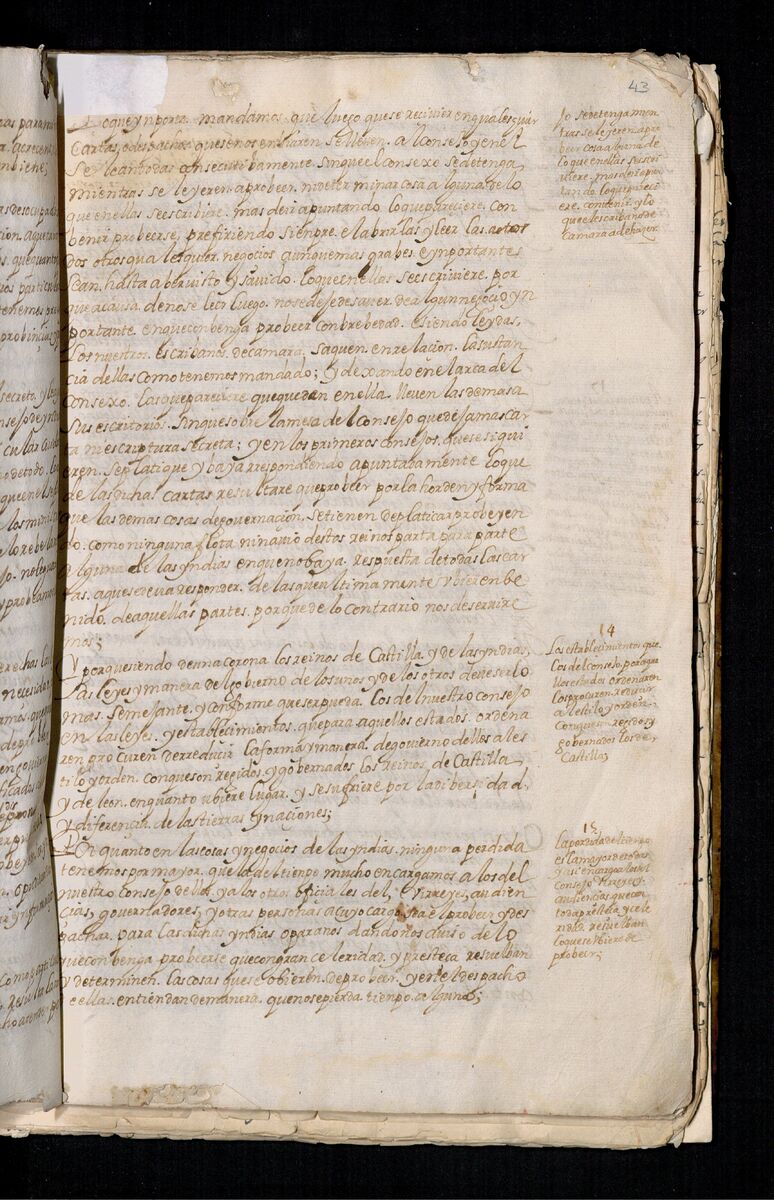 43
Lo que ynporta mandamos que luego que se recivieren quales quier
Cartas, o despachos que se nos enbiaren se lleven al consejo y en el
se lean todas consecutibamente sin que el consexo se detenga
mientras se leyeren a probeer ni determinar cosa alguna de lo
que en ellas se escribiere. mas de ir apuntando lo que pareciere con
benir probeerse, prefiriendo sienpre el abrirlas y leerlas a to
dos otros qualesquier negocios aunque mas grabes e ynportantes
sean, hasta aber visto y savido lo que en ellas se escriviere. por
que a causa de no se leer luego no se deje de saver de algun negocio yn
portante en que conbenga probeer con brebedad. e siendo leydas,
los nuestros escribanos de camara saquen en relacion la sustan
cia dellas como tenemos mandado; y dexando en el arca del
consexo las que pareciere que queden en ella lleven las demas a
sus escritorios sin que sobre la mesa del consejo quede jamas car
ta ni escriptura secreta; y en los primeros consejos que se sigui
eren se platique y baya respondiendo apuntadamente lo que
de las dichas cartas resultare que probeer por la horden y forma
que las demas cosas de governacion se tienen de platicar probeyen
do como ninguna flota ni navio destos reinos parta para parte
alguna de las yndias en que no baya respuesta de todas las car
tas a que se deva responder de las que ultimamente ubieren be
nido de aquellas partes porque de lo contrario nos deservire
mos;
Y porque siendo de una corona los reinos de Castilla y de las yndias,
las leyes y manera de gobierno de los unos y de los otros deve ser lo
mas semejante y conforme que ser pueda. Los del nuestro consejo
en las leyes y establecimientos que para aquellos estados ordena
ren procuren de reducir la forma y manera de govierno dellos al es
tilo y orden con que son regidos y gobernados los reinos de Castilla
y de leon en quanto ubiere lugar y se sufriere por la dibersidad
y diferencia de las tierras y naciones;
Por quanto en las cosas y negocios de las yndias ninguna perdida
tenemos por mayor que la del tiempo mucho encargamos a los del
nuestro Consejo dellas ya los otros oficiales del, e virreyes, audien
cias, governadores, y otras personas a cuyo cargo sea el probeer y des
pachar para las dichas yndias o para nos dandonos aviso de lo
que conbenga probeerse que con gran celeridad y presteca resuelban
y determinen las cosas que se obieren de probeer y en el despacho
de ellas entiendan de manera que no se pierda tiempo alguno;
No se detenga mien
tras se leyeren a pro
beer cosa alguna de
lo que en ellas se escri
viere, mas de ir apun
tando lo que pareci
ere convenir y lo
que el escribano de
camara a de hazer
14
Los establecimientos que
los del consejo para aque
llos estados ordenaren
los procuren reducir
al estilo y orden
con que son regidos y
gobernados los de
Castilla;
15
La perdida de tiempo
es la mayor de todas
y asi encarga los del
Consejo Virreyes y
audiencias que con
toda presteca y cele
ridad resuelban
lo que se ubiere de
probeer;